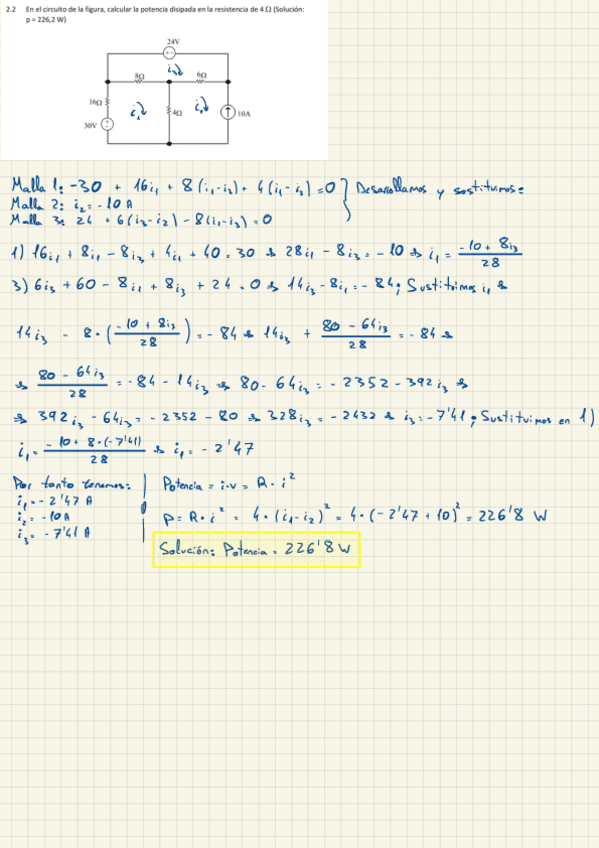 2.2 En el circuito de la figura, calcular la potencia disipada en la resistencia de 4 Ω (Solución:
p = 226,2 W)
24V
i₃
8Ω
6Ω
16Ω
i₁
4Ω
i₂
10A
30V
Malla 1: -30 + 16i₁ + 8(i₁-i₃) + 4(i₁-i₂) = 0 } Desarollamos y sustituimos:
Malla 2: i₂ = -10 A
Malla 3: 24 + 6(i₃-i₂) - 8(i₁-i₃) = 0
1) 16i₁ + 8i₁ - 8i₃ + 4i₁ + 40 = 30 → 28i₁ - 8i₃ = -10 → i₁ = (-10 + 8i₃)/28
3) 6i₃ + 60 - 8i₁ + 8i₃ + 24 = 0 → 14i₃ - 8i₁ = -84; Sustituimos i₁ →
14i₃ - 8·((-10 + 8i₃)/28) = -84 → 14i₃ + (80 - 64i₃)/28 = -84 →
→ (80 - 64i₃)/28 = -84 - 14i₃ → 80 - 64i₃ = -2352 - 392i₃ →
→ 392i₃ - 64i₃ = -2352 - 80 → 328i₃ = -2432 → i₃ = -7'41; Sustituimos en 1)
i₁ = (-10 + 8·(-7'41))/28 → i₁ = -2'47
Por tanto tenemos:
i₁ = -2'47 A
i₂ = -10 A
i₃ = -7'41 A
Potencia = i·v = R·i²
P = R·i² = 4·(i₁-i₂)² = 4·(-2'47 + 10)² = 226'8 W
Solución: Potencia = 226'8 W